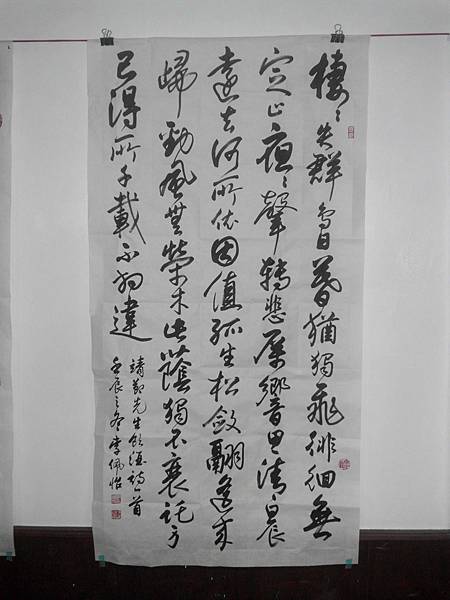 棲〻失群鳥日暮猶獨飛徘徊無
定止夜〻聲轉悲厲響思清晨
遠去何所依因值孤生松斂翮遙來
歸勁風無榮木此蔭獨不衰託身
已得所千載不相違
靖節先生飲酒詩一首
壬辰之冬李佩怡